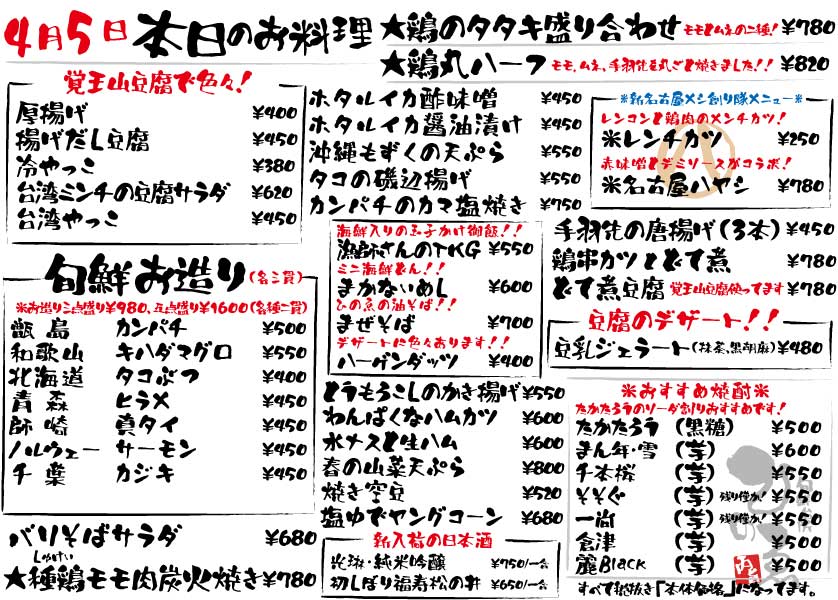 4月5日 本日のお料理
★鶏のタタキ盛り合わせ モモとムネの二種! ¥780
★鶏丸ハーフ モモ、ムネ、手羽先を丸ごと焼きました!! ¥820
覚王山豆腐で色々!
厚揚げ ¥400
揚げだし豆腐 ¥450
冷やっこ ¥380
台湾ミンチの豆腐サラダ ¥620
台湾やっこ ¥450
ホタルイカ酢味噌 ¥450
ホタルイカ醤油漬け ¥450
沖縄もずくの天ぷら ¥550
タコの磯辺揚げ ¥550
カンパチのカマ塩焼き ¥750
※新名古屋メシ創り隊メニュー※
レンコンと鶏肉のメンチカツ!
※レンチカツ ¥250
赤味噌とデミソースがコラボ!
※名古屋ハヤシ ¥780
旬鮮お造り (各二貫)
※お造り三点盛り¥980、五点盛り¥1600(各種二貫)
甑島 カンパチ ¥500
和歌山 キハダマグロ ¥550
北海道 タコぶつ ¥400
青森 ヒラメ ¥450
師崎 真タイ ¥450
ノルウェー サーモン ¥450
千葉 カジキ ¥450
海鮮入りの玉子かけ御飯!!
漁師さんのTKG ¥550
ミニ海鮮どん!!
まかないめし ¥600
ひの魚の油そば!!
まぜそば ¥700
デザートに色々あります!!
ハーゲンダッツ ¥400
手羽先の唐揚げ(3本) ¥450
鶏串カツとどて煮 ¥780
どて煮豆腐 覚王山豆腐使ってます ¥780
豆腐のデザート!!
豆乳ジェラート(抹茶、黒胡麻) ¥480
とうもろこしのかき揚げ ¥550
わんぱくなハムカツ ¥600
水ナスと生ハム ¥600
春の山菜天ぷら ¥800
焼き空豆 ¥520
塩ゆでヤングコーン ¥680
※おすすめ焼酎※
たかたろうのソーダ割りおすすめです!
たかたろう (黒糖) ¥500
まん年・雪 (芋) ¥600
千本桜 (芋) ¥550
そそぐ (芋) 残り僅か! ¥550
一尚 (芋) 残り僅か! ¥550
倉津 (芋) ¥500
麗Black (芋) ¥500
すべて税抜き「本体価格」になってます。
バリそばサラダ ¥680
しゅけい
★種鶏モモ肉炭火焼き ¥780
新入荷の日本酒
光琳・純米吟醸 ¥750/一合
初しぼり福寿松の井 ¥650/一合